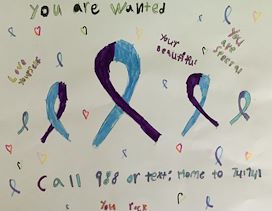 you are wanted
Your
Beautiful
You
are
Special
Love
Yourself
Call 988 or text: Home to 741741
You rock